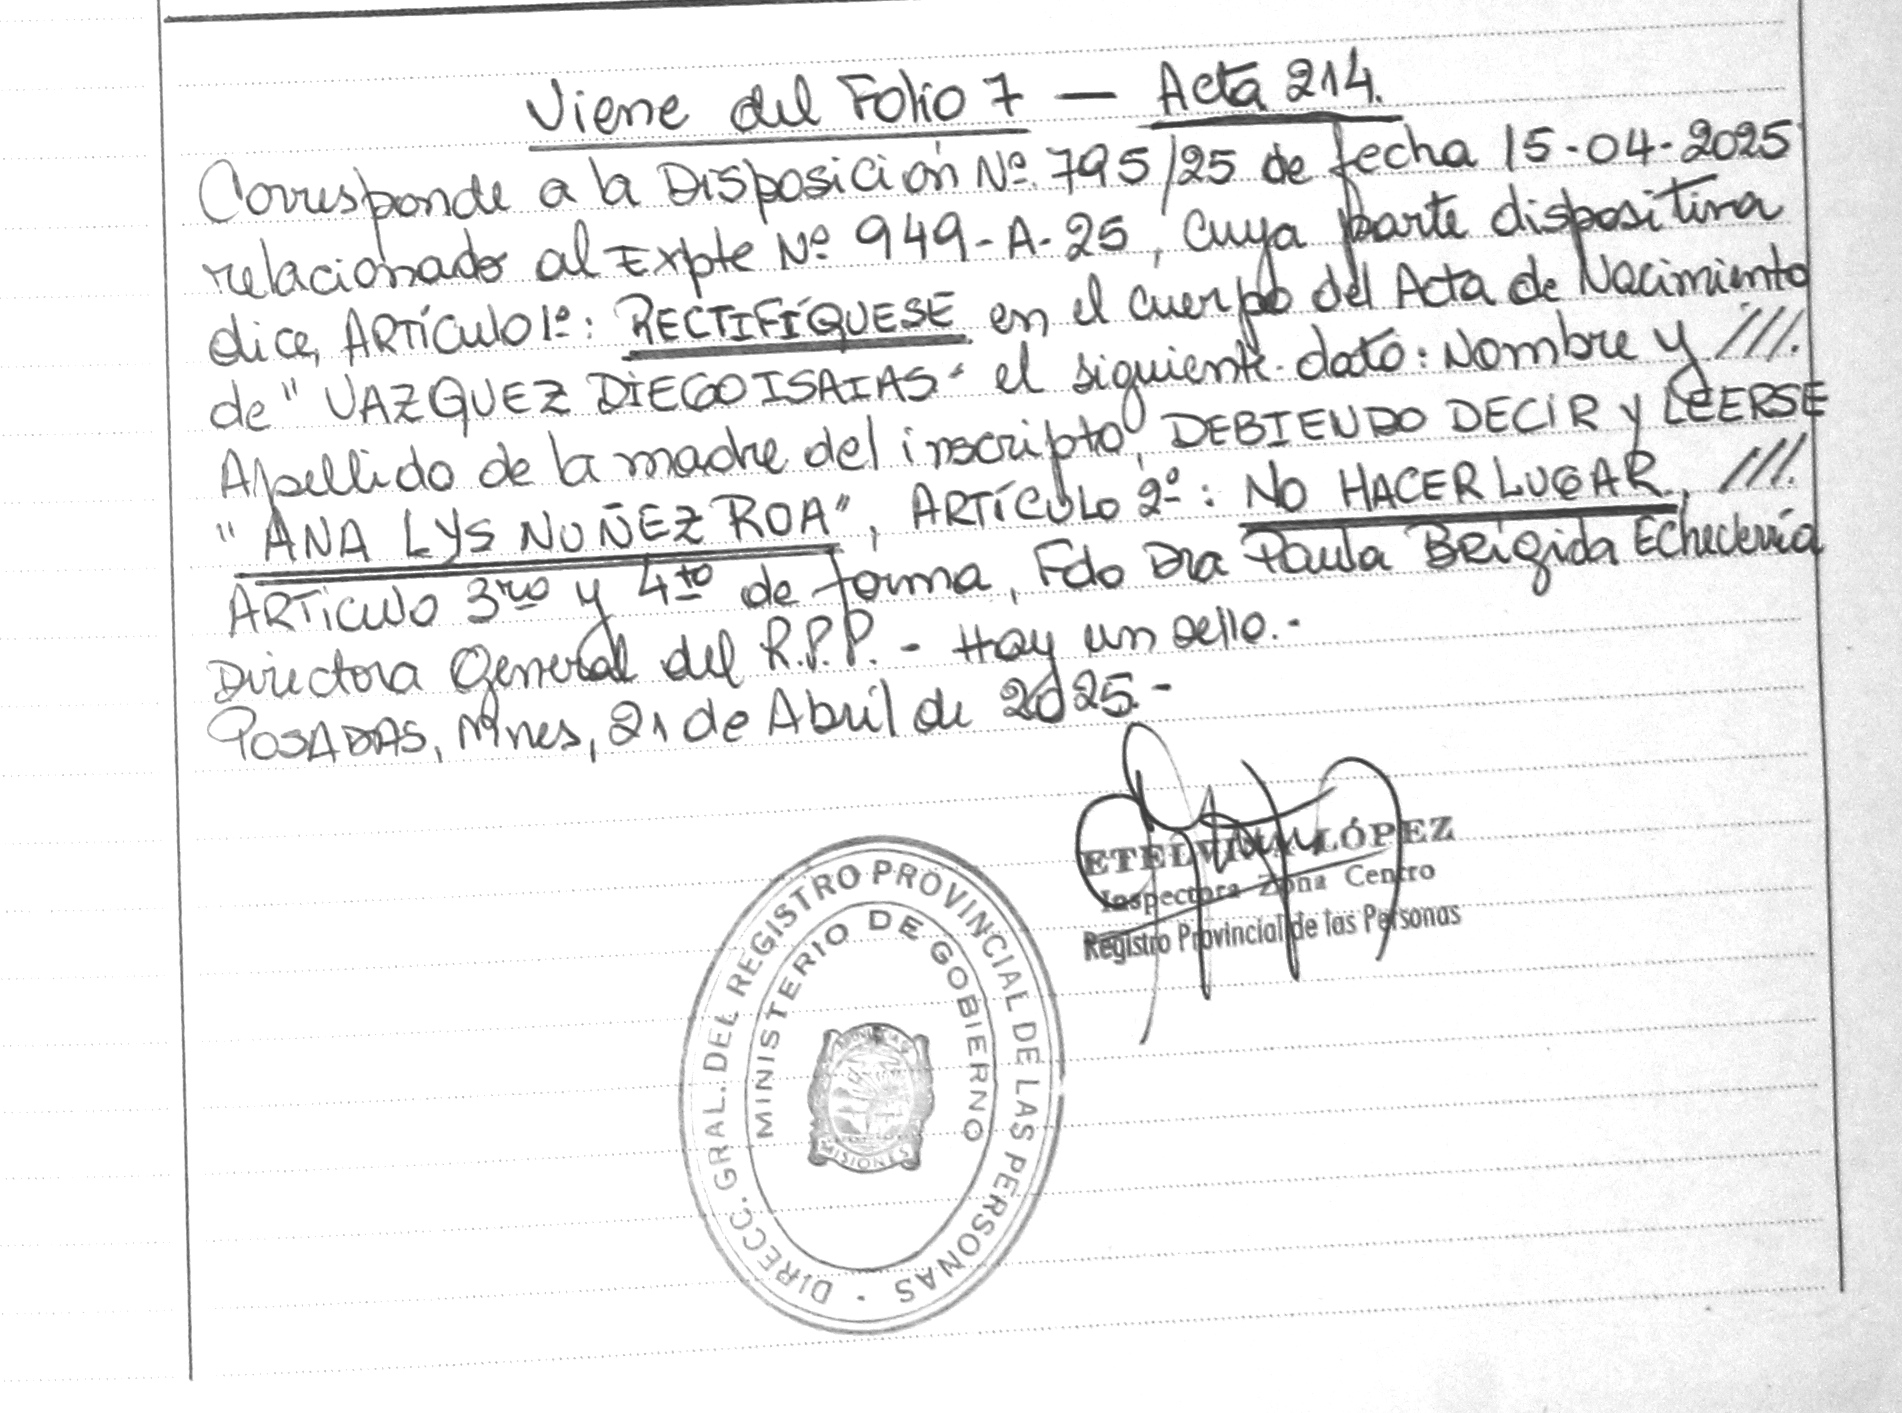 Viene del Folio 7 — Acta 214.
Corresponde a la Disposición Nº 795/25 de fecha 15-04-2025
relacionado al Expte Nº 949-A-25, cuya parte dispositiva
dice, ARTÍCULO 1º: RECTIFÍQUESE en el cuerpo del Acta de Nacimiento
de "VAZQUEZ DIEGO ISAIAS" el siguiente dato: Nombre y ///.
Apellido de la madre del inscripto, DEBIENDO DECIR Y LEERSE
"ANA LYS NUÑEZ ROA", ARTÍCULO 2º: NO HACER LUGAR, ///.
ARTÍCULO 3ro y 4to de forma, Fdo Dra Paula Brígida Echeverría
Directora General del R.P.P. - Hay un sello.-
POSADAS, Mnes, 21 de Abril de 2025.-
ETELVINA LÓPEZ
Inspectora Zona Centro
Registro Provincial de las Personas
DIRECC. GRAL. DEL REGISTRO PROVINCIAL DE LAS PERSONAS
MINISTERIO DE GOBIERNO
MISIONES